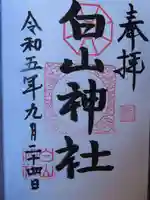 奉拝
白山神社
令和五年九月二十四日